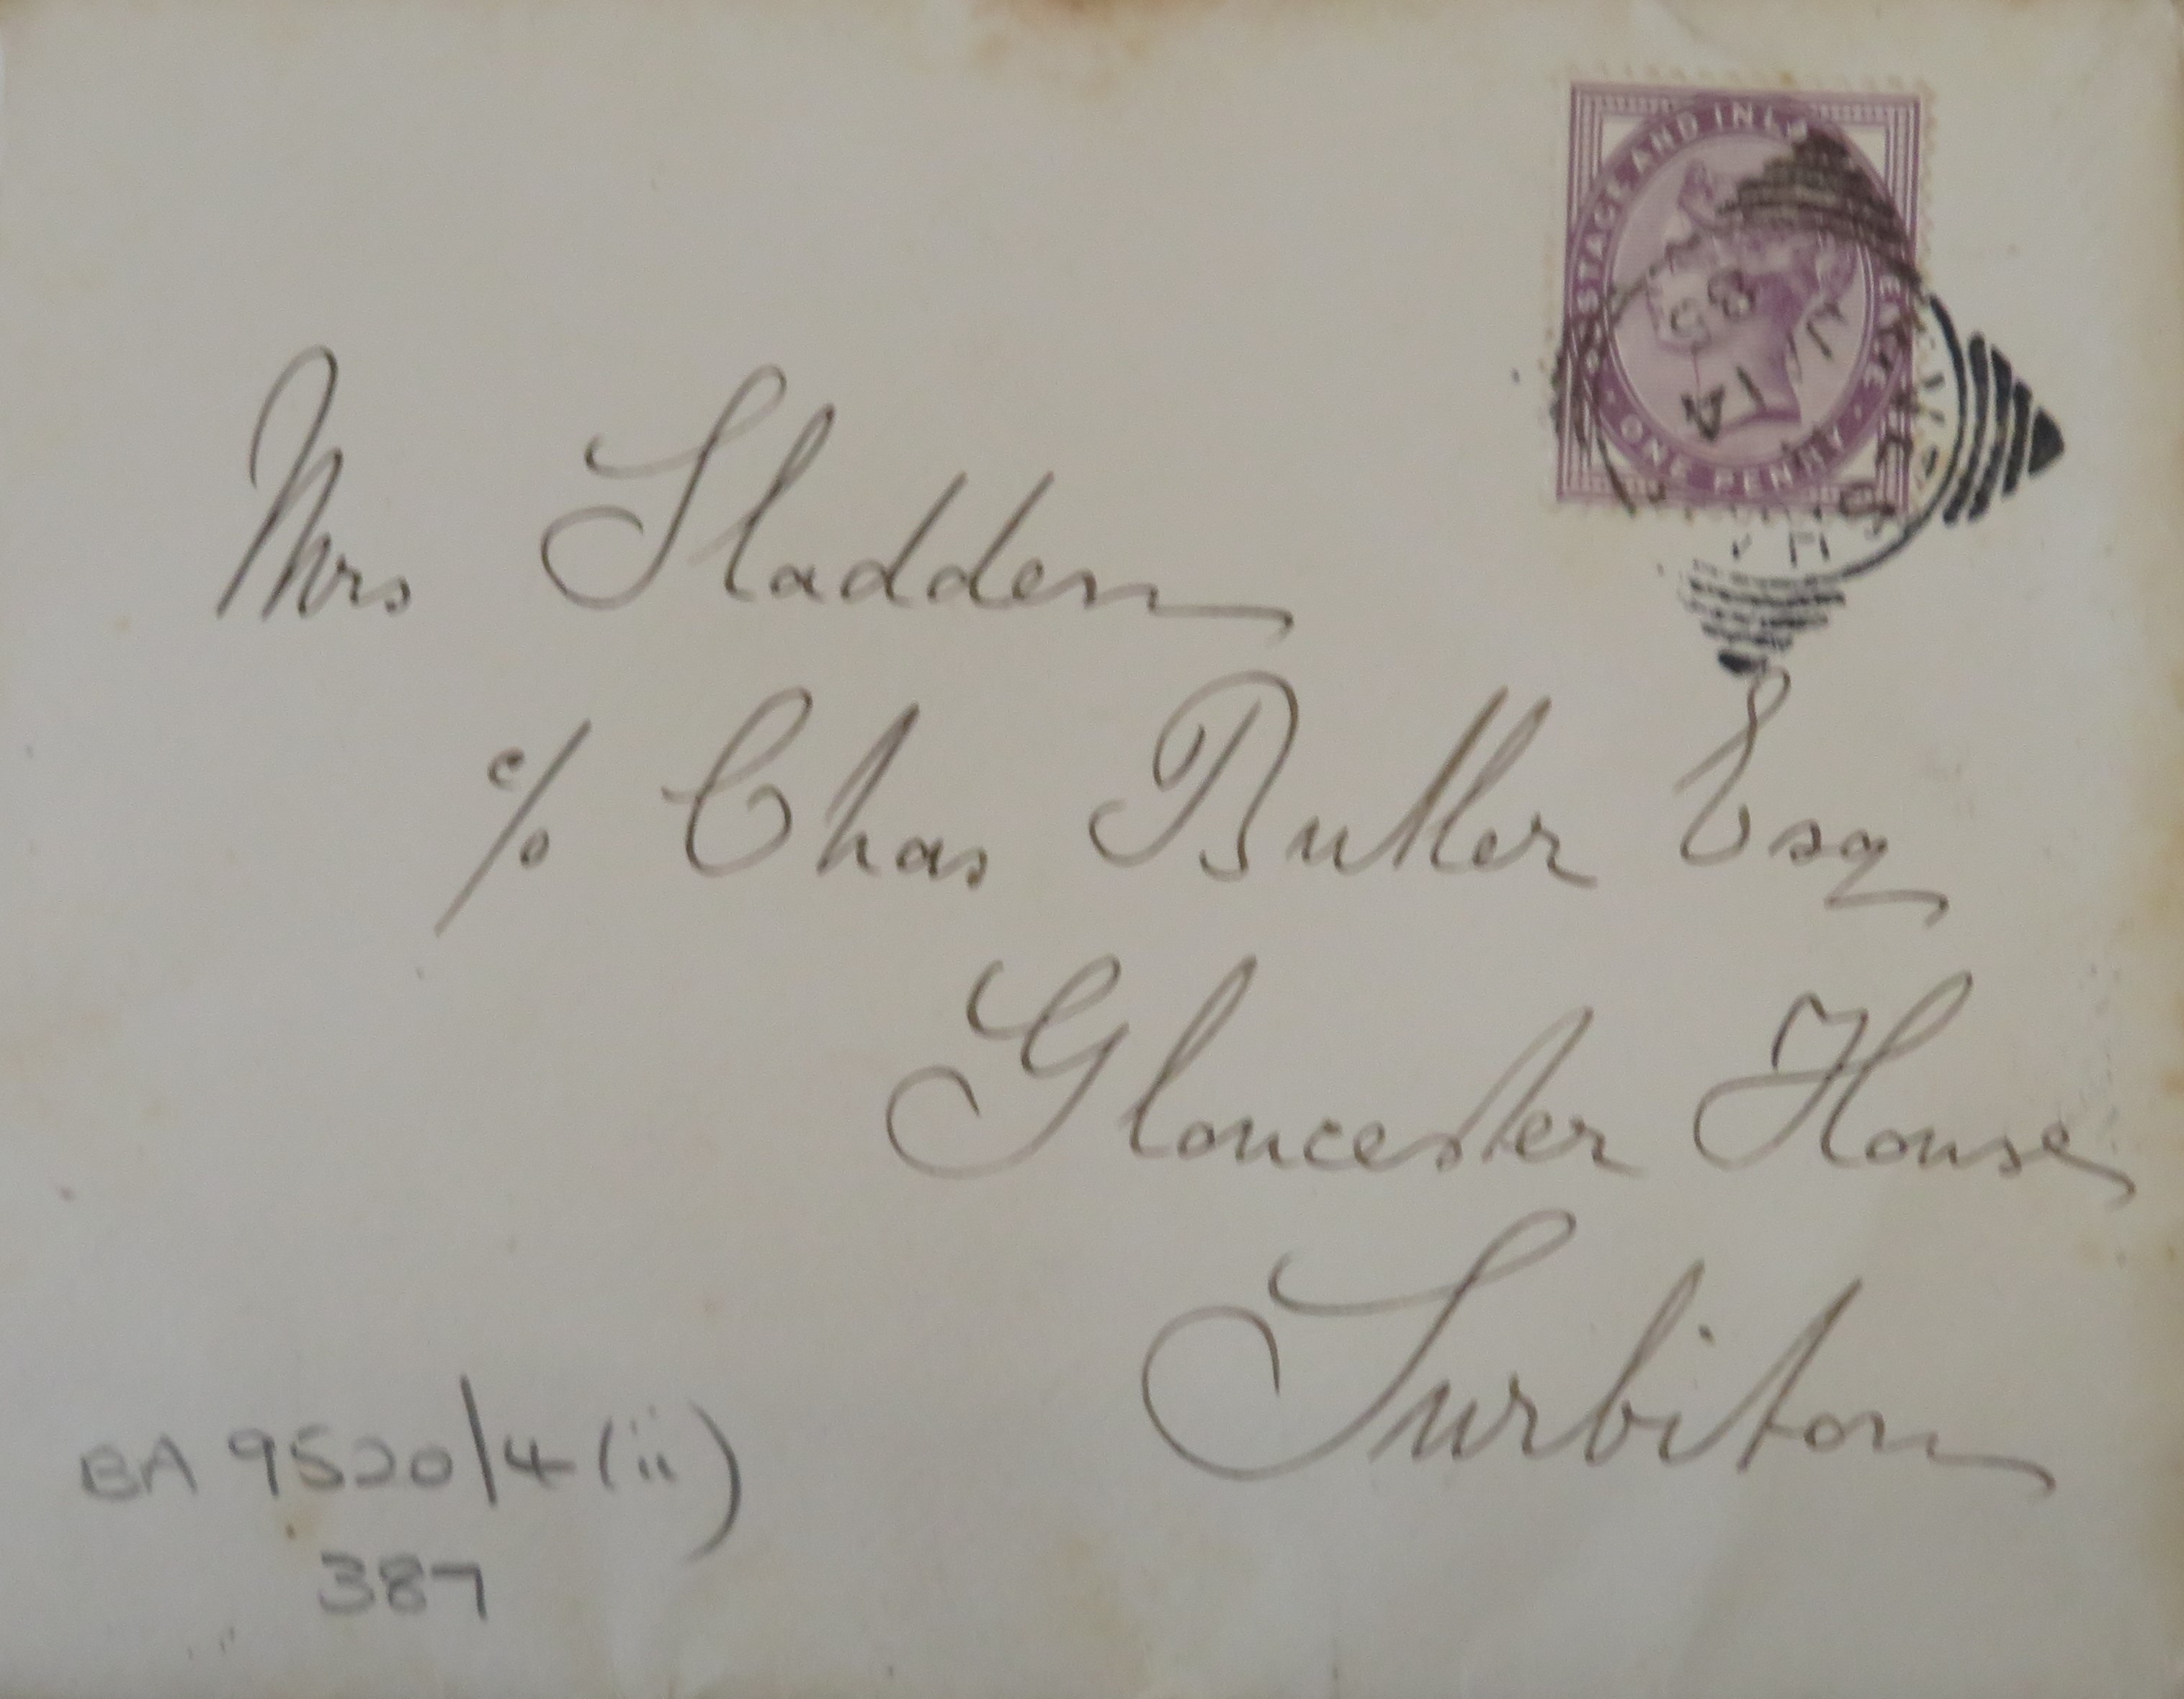 POSTAGE AND INL
ONE PENNY
Mrs Sladden
c/o Chas Butler Esq
Gloucester House
Surbiton
BA 9520/4 (ii)
387